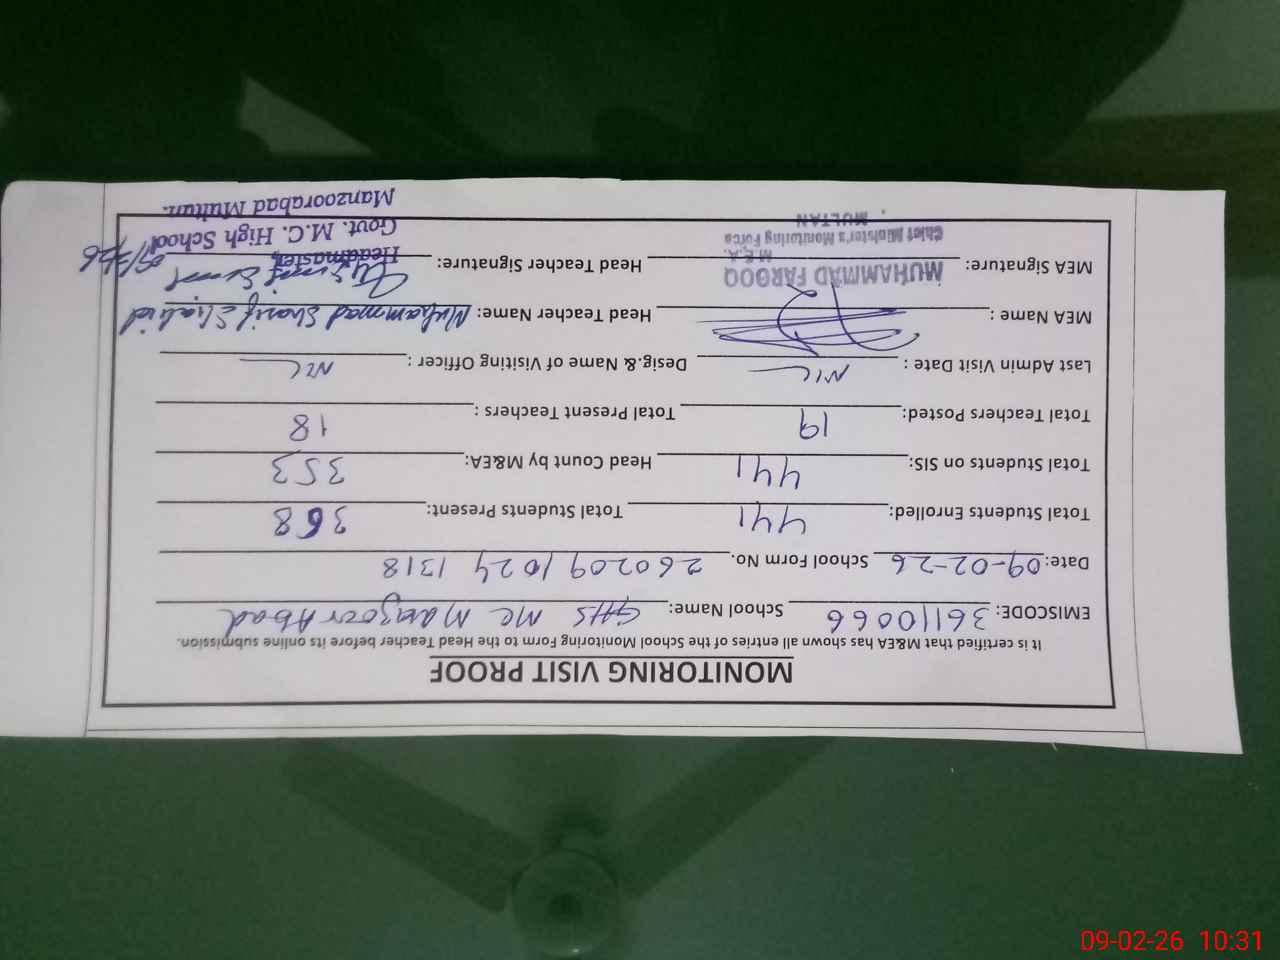 MONITORING VISIT PROOF
It is certified that M&EA has shown all entries of the School Monitoring Form to the Head Teacher before its online submission.
EMISCODE: 36110066 School Name: GHS MC Manzoor Abad
Date: 09-02-26 School Form No. 260209 1024 1318
Total Students Enrolled: 441 Total Students Present: 368
Total Students on SIS: 441 Head Count by M&EA: 353
Total Teachers Posted: 19 Total Present Teachers : 18
Last Admin Visit Date : NIL Desig.& Name of Visiting Officer : NIL
MEA Name : Head Teacher Name: Muhammad Sharif Shahid
MEA Signature: Head Teacher Signature:
MUHAMMAD FAROOQ
M.E.A.
Chief Minister's Monitoring Force
MULTAN
Headmaster,
Govt. M.C. High School
Manzoorabad Multan.
09-02-26 10:31